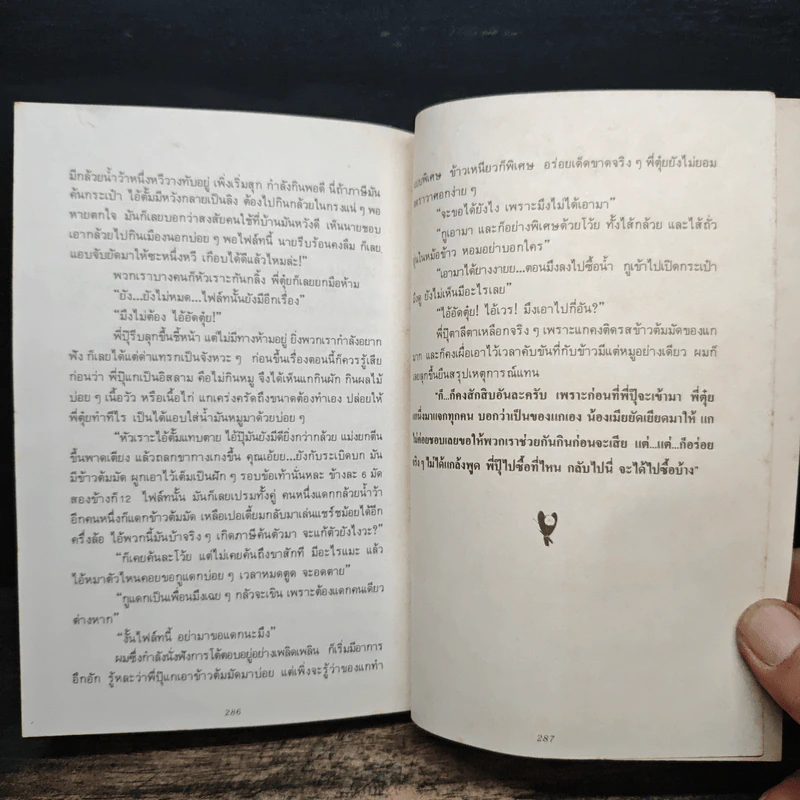 มีกล้วยน้ำว้าหนึ่งหวีวางทับอยู่ เพิ่งเริ่มสุก กำลังกินพอดี นี่ถ้าภาษีมัน
ค้นกระเป๋า ไอ้ตั้มมีหวังกลายเป็นลิง ต้องไปกินกล้วยในกรงแน่ ๆ พอ
หายตกใจ มันก็เลยบอกว่าสงสัยคนใช้ที่บ้านมันหวังดี เห็นนายชอบ
เอากล้วยไปกินเมืองนอกบ่อย ๆ พอไฟล์ทนี้ นายรีบร้อนคงลืม ก็เลย
แอบจับยัดมาให้ซะหนึ่งหวี เกือบได้ดีแล้วไหมล่ะ!"
พวกเราบางคนก็หัวเราะกันกลิ้ง พี่ตุ๋ยก็เลยยกมือห้าม
"ยัง...ยังไม่หมด...ไฟล์ทนั้นยังมีอีกเรื่อง"
"มึงไม่ต้อง ไอ้อัดตุ๋ย!"
พี่ปุ๊รีบลุกขึ้นชี้หน้า แต่ไม่มีทางห้ามอยู่ ยิ่งพวกเรากำลังอยาก
ฟัง ก็เลยได้แต่ด่าแทรกเป็นจังหวะ ๆ ก่อนขึ้นเรื่องตอนนี้ก็ควรรู้เสีย
ก่อนว่า พี่ปุ๊แกเป็นอิสลาม คือไม่กินหมู จึงได้เห็นแกกินผัก กินผลไม้
บ่อย ๆ เนื้อวัว หรือเนื้อไก่ แกเคร่งครัดถึงขนาดต้องทำเอง ปล่อยให้
พี่ตุ๋ยทำทีไร เป็นได้แอบใส่น้ำมันหมูมาด้วยบ่อย ๆ
"หัวเราะไอ้ตั้มแทบตาย ไอ้ปุ๊มันยังมีดียิ่งกว่ากล้วย แม่งยกตีน
ขึ้นพาดเตียง แล้วถลกขากางเกงขึ้น คุณเอ๊ยย...ยังกับระเบิดบก มัน
มีข้าวต้มมัด ผูกเอาไว้เต็มเป็นผัก ๆ รอบข้อเท้านั่นหละ ข้างละ 6 มัด
สองข้างก็ 12 ไฟล์ทนั้น มันก็เลยเปรมทั้งคู่ คนหนึ่งแดกกล้วยน้ำว้า
อีกคนหนึ่งก็แดกข้าวต้มมัด เหลือเปอเตี้ยมกลับมาเล่นแชร์ชม้อยได้อีก
ครึ่งล้อ ไอ้พวกนี้มันบ้าจริง ๆ เกิดภาษีค้นตัวมา จะแก้ตัวยังไงวะ?"
"ก็เคยค้นละโว้ย แต่ไม่เคยค้นถึงขาสักที มีอะไรแมะ แล้ว
ไอ้หมาตัวไหนคอยขอกูแดกบ่อย ๆ เวลาหมดตูด จะอดตาย"
"กูแดกเป็นเพื่อนมึงเฉย ๆ กลัวจะเขิน เพราะต้องแดกคนเดียว
ต่างหาก"
"งั้นไฟล์ทนี้ อย่ามาขอแดกนะมึง"
ผมซึ่งกำลังนั่งฟังการโต้ตอบอยู่อย่างเพลิดเพลิน ก็เริ่มมีอาการ
อึกอัก รู้หละว่าพี่ปุ๊แกเอาข้าวต้มมัดมาบ่อย แต่เพิ่งจะรู้ว่าของแกทำ
286
พิเศษ ข้าวเหนียวก็พิเศษ อร่อยเด็ดขาดจริง ๆ พี่ตุ๋ยยังไม่ยอม
ง่าย ๆ
"จะขอได้ยังไง เพราะมึงไม่ได้เอามา"
"กูเอามา และก็อย่างพิเศษด้วยโว้ย ทั้งไส้กล้วย และไส้ถั่ว
ในหม้อข้าว หอมอย่าบอกใคร"
"เอามาได้ยางงายย...ตอนมึงลงไปซื้อน้ำ กูเข้าไปเปิดกระเป๋า
มึงดู ยังไม่เห็นมีอะไรเลย"
"ไอ้อัดตุ๋ย! ไอ้เวร! มึงเอาไปกี่อัน?"
พี่ปุ๊ตาลีตาเหลือกจริง ๆ เพราะแกคงติดรสข้าวต้มมัดของแก
มาก และก็คงเผื่อเอาไว้เวลาคับขันที่กับข้าวมีแต่หมูอย่างเดียว ผมก็
เลยลุกขึ้นยืนสรุปเหตุการณ์แทน
"ก็..ก็คงสักสิบอันละครับ เพราะก่อนที่พี่ปุ๊จะเข้ามา พี่ตุ๋ย
มาแจกทุกคน บอกว่าเป็นของแกเอง น้องเมียยัดเยียดมาให้ แก
ไม่ค่อยชอบเลยขอให้พวกเราช่วยกันกินก่อนจะเสีย แต่...แต่...ก็อร่อย
ไม่ได้แกล้งพูด พี่ปุ๊ไปซื้อที่ไหน กลับไปนี่ จะได้ไปซื้อบ้าง"
287